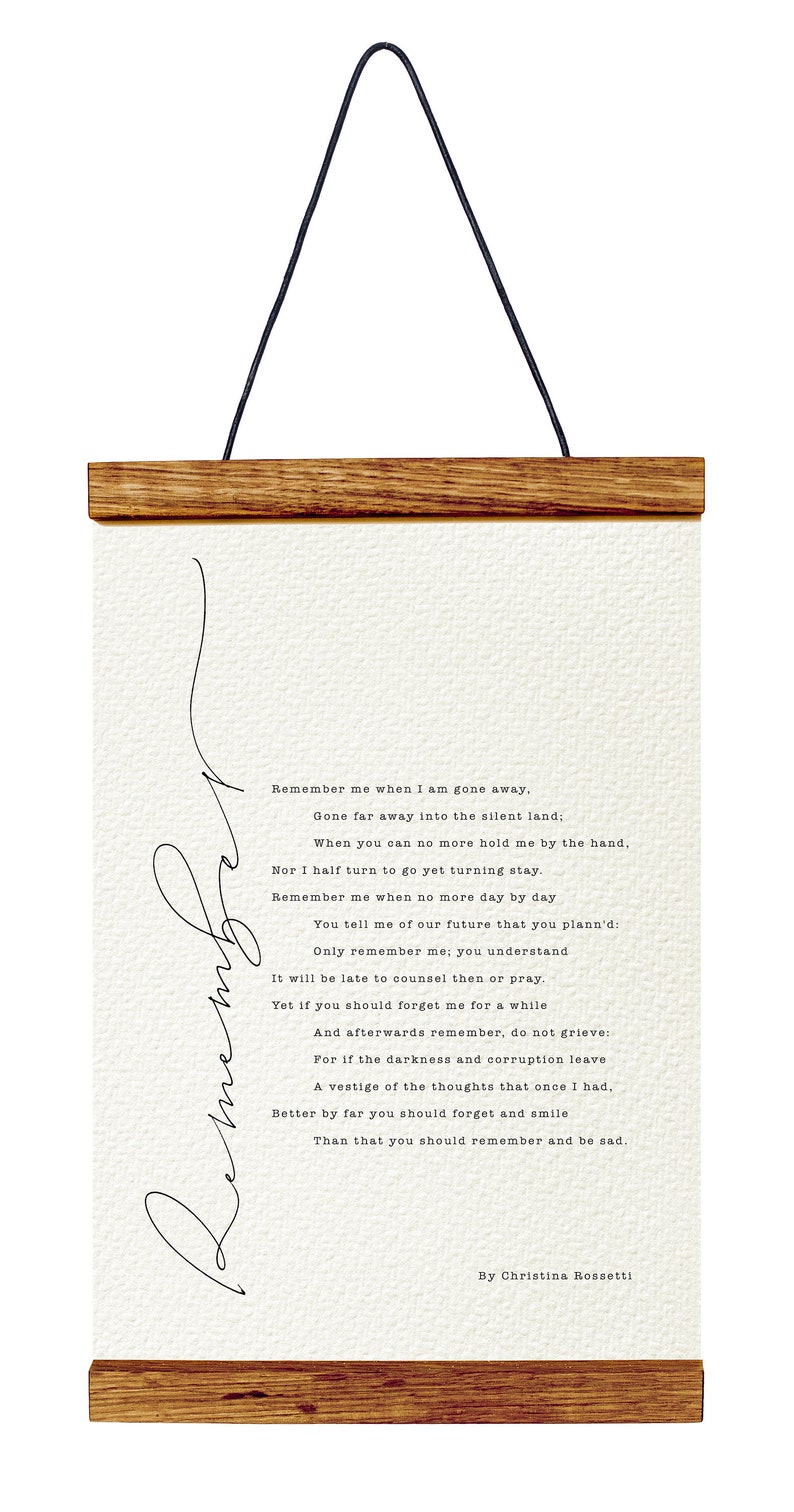 Remember
Remember me when I am gone away,
Gone far away into the silent land;
When you can no more hold me by the hand,
Nor I half turn to go yet turning stay.
Remember me when no more day by day
You tell me of our future that you plann'd:
Only remember me; you understand
It will be late to counsel then or pray.
Yet if you should forget me for a while
And afterwards remember, do not grieve:
For if the darkness and corruption leave
A vestige of the thoughts that once I had,
Better by far you should forget and smile
Than that you should remember and be sad.
By Christina Rossetti